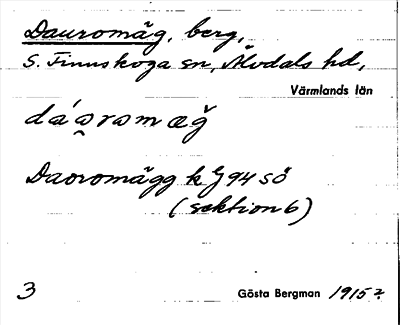 Dauromäg, berg,
S. Finnskoga sn, Älvdals hd,
Värmlands län
Daoromägg k
94 sö
(sektion 6)
3
Gösta Bergman 1915